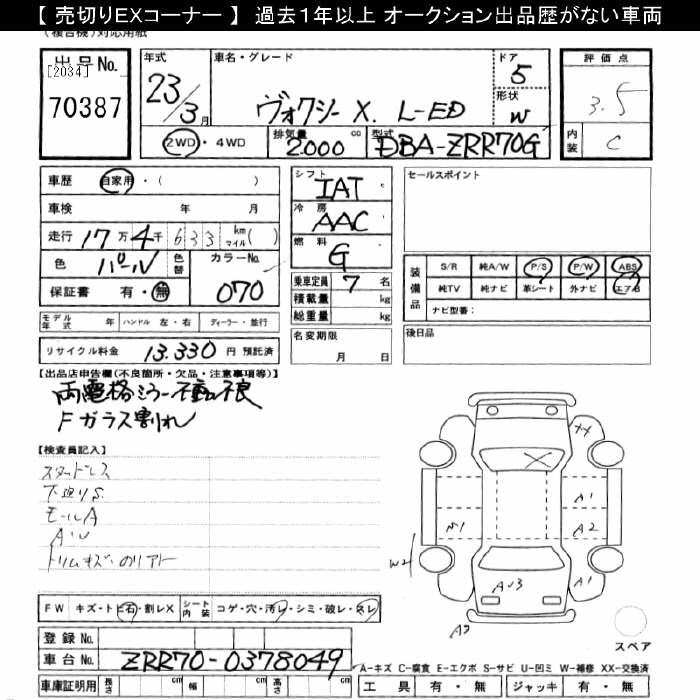 【 売切りEXコーナー 】 過去１年以上 オークション出品歴がない車両
(複合機)対応用紙
出品No.
[2034]
70387
年式
23/3月
車名・グレード
ヴォクシー X. L-ED
ドア
5
形状
W
評価点
3.5
内装
C
2WD・4WD
排気量
2000 cc
型式
DBA-ZRR70G
車歴 自家用・( )
車検 年 月
走行 17万4千633 km マイル( )
色 パール 色替
カラーNo.
070
保証書 有・無
シフト
IAT
冷房
AAC
燃料
G
乗車定員 7 名
積載量 kg
総重量 kg
セールスポイント
装備品
S/R 純A/W P/S P/W ABS
純TV 純ナビ 革シート 外ナビ エアB
ナビ型番:
モデル年式 年 ハンドル 左・右 ディーラー・並行
リサイクル料金 13.330 円 預託済
名変期限
月 日
後日品
【出品店申告欄(不良箇所・欠品・注意事項等)】
両電格ミラー不動不良
Fガラス割れ
【検査員記入】
スタッドレス
下廻りS
モールA
トリムキズ
XX
X
A1
A2
A1
W2
A3
FW キズ・トビ石・割レX シート内装 コゲ・穴・汚レ・シミ・破レ・スレ
スペア
登録No.
車台No. ZRR70-0378049
A-キズ C-腐食 E-エクボ S-サビ U-凹ミ W-補修 XX-交換済
車庫証明用 長さ cm 幅 cm 高さ cm
工具 有・無 ジャッキ 有・無